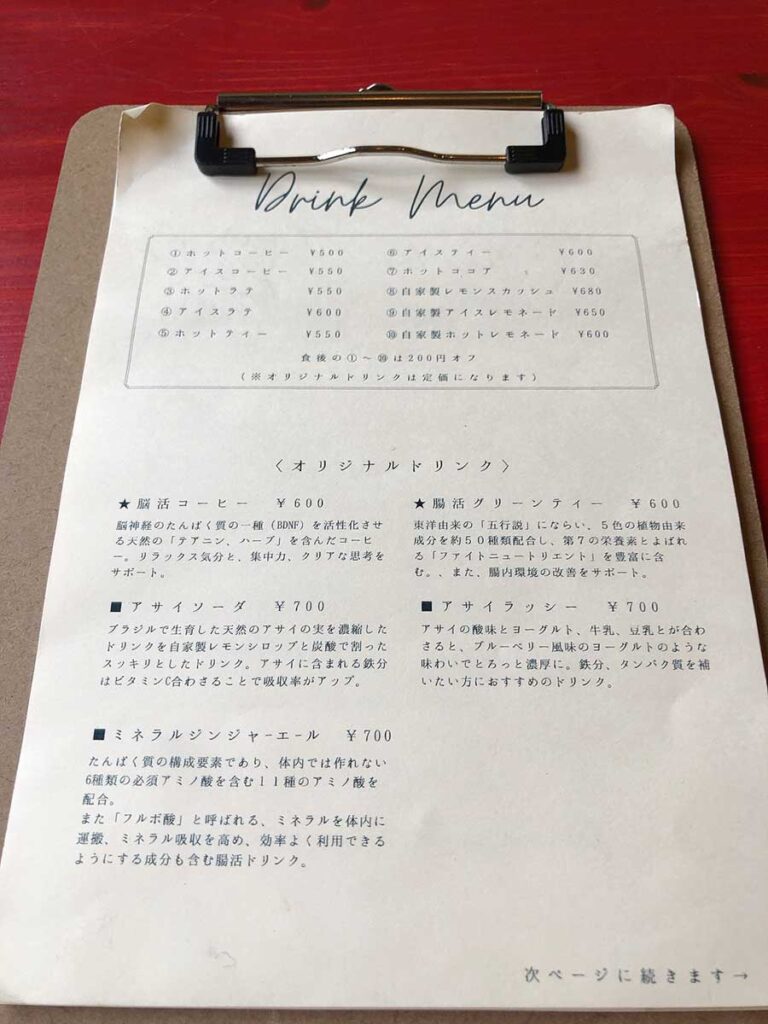 Drink Menu
①ホットコーヒー ¥500
②アイスコーヒー ¥550
③ホットラテ ¥550
④アイスラテ ¥600
⑤ホットティー ¥550
⑥アイスティー ¥600
⑦ホットココア ¥630
⑧自家製レモンスカッシュ ¥680
⑨自家製アイスレモネード ¥650
⑩自家製ホットレモネード ¥600
食後の①～⑩は200円オフ
(※オリジナルドリンクは定価になります)
〈オリジナルドリンク〉
★脳活コーヒー ¥600
脳神経のたんぱく質の一種(BDNF)を活性化させ
る天然の「テアニン、ハーブ」を含んだコーヒ
ー。リラックス気分と、集中力、クリアな思考を
サポート。
★腸活グリーンティー ¥600
東洋由来の「五行説」にならい、5色の植物由来
成分を約50種類配合し、第7の栄養素とよばれ
る「ファイトニュートリエント」を豊富に含
む。、また、腸内環境の改善をサポート。
■アサイソーダ ¥700
ブラジルで生育した天然のアサイの実を濃縮した
ドリンクを自家製レモンシロップと炭酸で割った
スッキリとしたドリンク。アサイに含まれる鉄分
はビタミンC合わさることで吸収率がアップ。
■アサイラッシー ¥700
アサイの酸味とヨーグルト、牛乳、豆乳とが合わ
さると、ブルーベリー風味のヨーグルトのような
味わいでとろっと濃厚に。鉄分、タンパク質を補
いたい方におすすめのドリンク。
■ミネラルジンジャーエール ¥700
たんぱく質の構成要素であり、体内では作れない
6種類の必須アミノ酸を含む11種のアミノ酸を
配合。
また「フルボ酸」と呼ばれる、ミネラルを体内に
運搬、ミネラル吸収を高め、効率よく利用できる
ようにする成分も含む腸活ドリンク。
次ページに続きます→